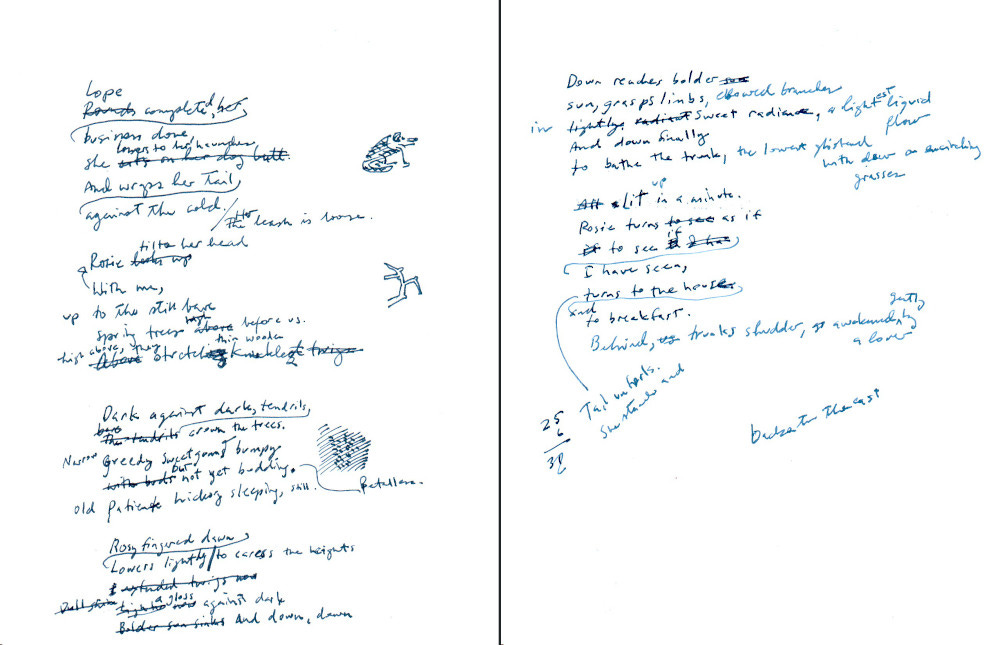 Lope
Rounds completed, her
business done,
lowers to her haunches
she sits on her dog butt.
And wraps her Tail
against the cold.
The leash is loose.
tilts her head
Rosie looks up
With me,
up to the still bare
spring trees high above before us.
high above, they thin wooden
Above Stretching knuckled twigs
Dark against dark, tendrils,
bare
The tendrils crown the trees.
Narrow Greedy sweetgum bumpy
with buds but not yet budding.
old Patient hickory sleeping, still.
Rosy fingered dawn
Lowers lightly to caress the heights
I extended twigs now
a gloss
against dark
Bolder sun sinks And down, down
Down reaches bolder sun
sun, grasps limbs, elbowed branches
in lightly radiant sweet radiance, a lightest liquid
flow
And down finally
to bathe the trunk, the lowest
with dew on encircling
grasses
up
All Lit in a minute.
Rosie turns to see as if
if
to see I has
I have seen,
turns to the house,
and
to breakfast.
gently
Behind, trunks shudder, awakened by
a lover
Tail unfurls.
She stands and
25
6
back to the east